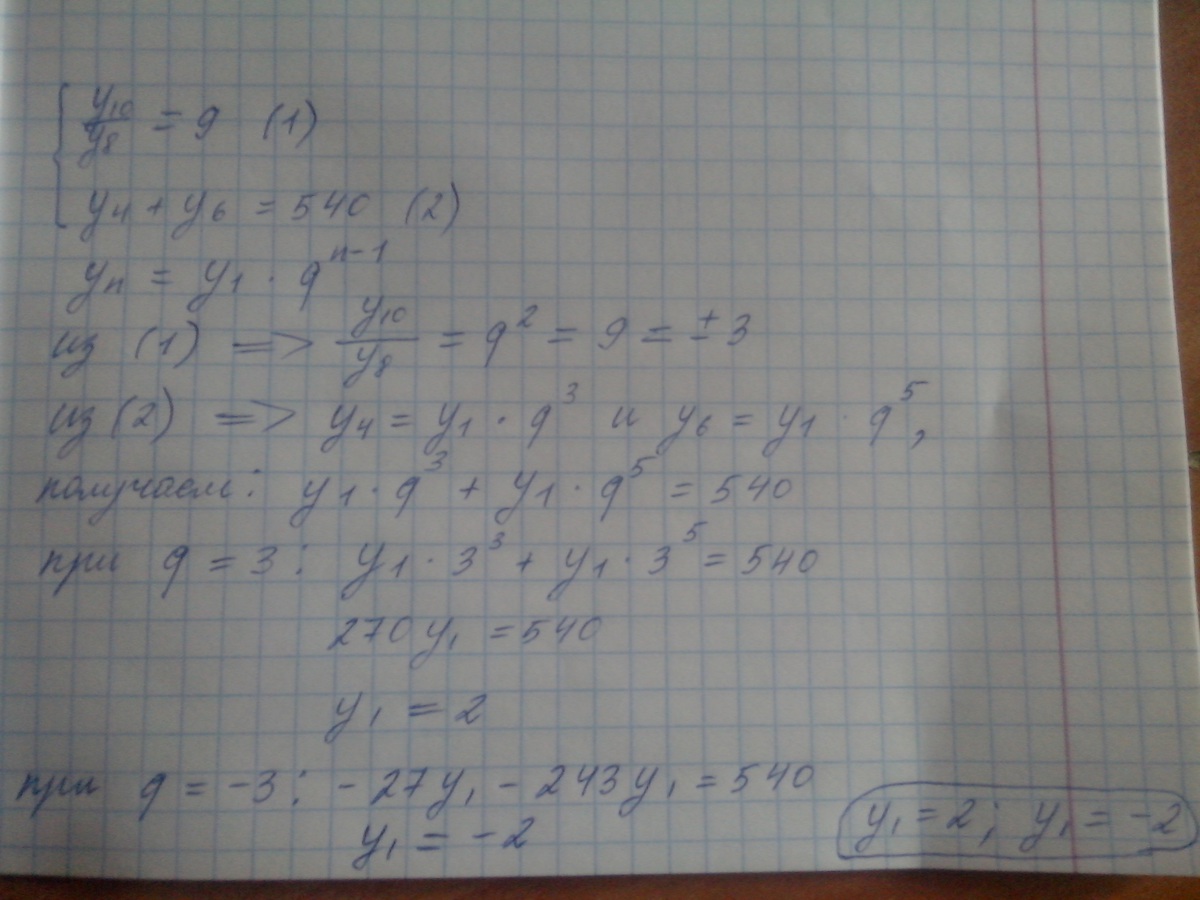 y₁₀/y₈ = 9 (1)
y₄ + y₆ = 540 (2)
yₙ = y₁ · qⁿ⁻¹
из (1) => y₁₀/y₈ = q² = 9 = ± 3
из (2) => y₄ = y₁ · q³ и y₆ = y₁ · q⁵,
получаем: y₁ · q³ + y₁ · q⁵ = 540
при q = 3: y₁ · 3³ + y₁ · 3⁵ = 540
270 y₁ = 540
y₁ = 2
при q = -3: - 27y₁ - 243y₁ = 540
y₁ = -2
y₁ = 2; y₁ = -2